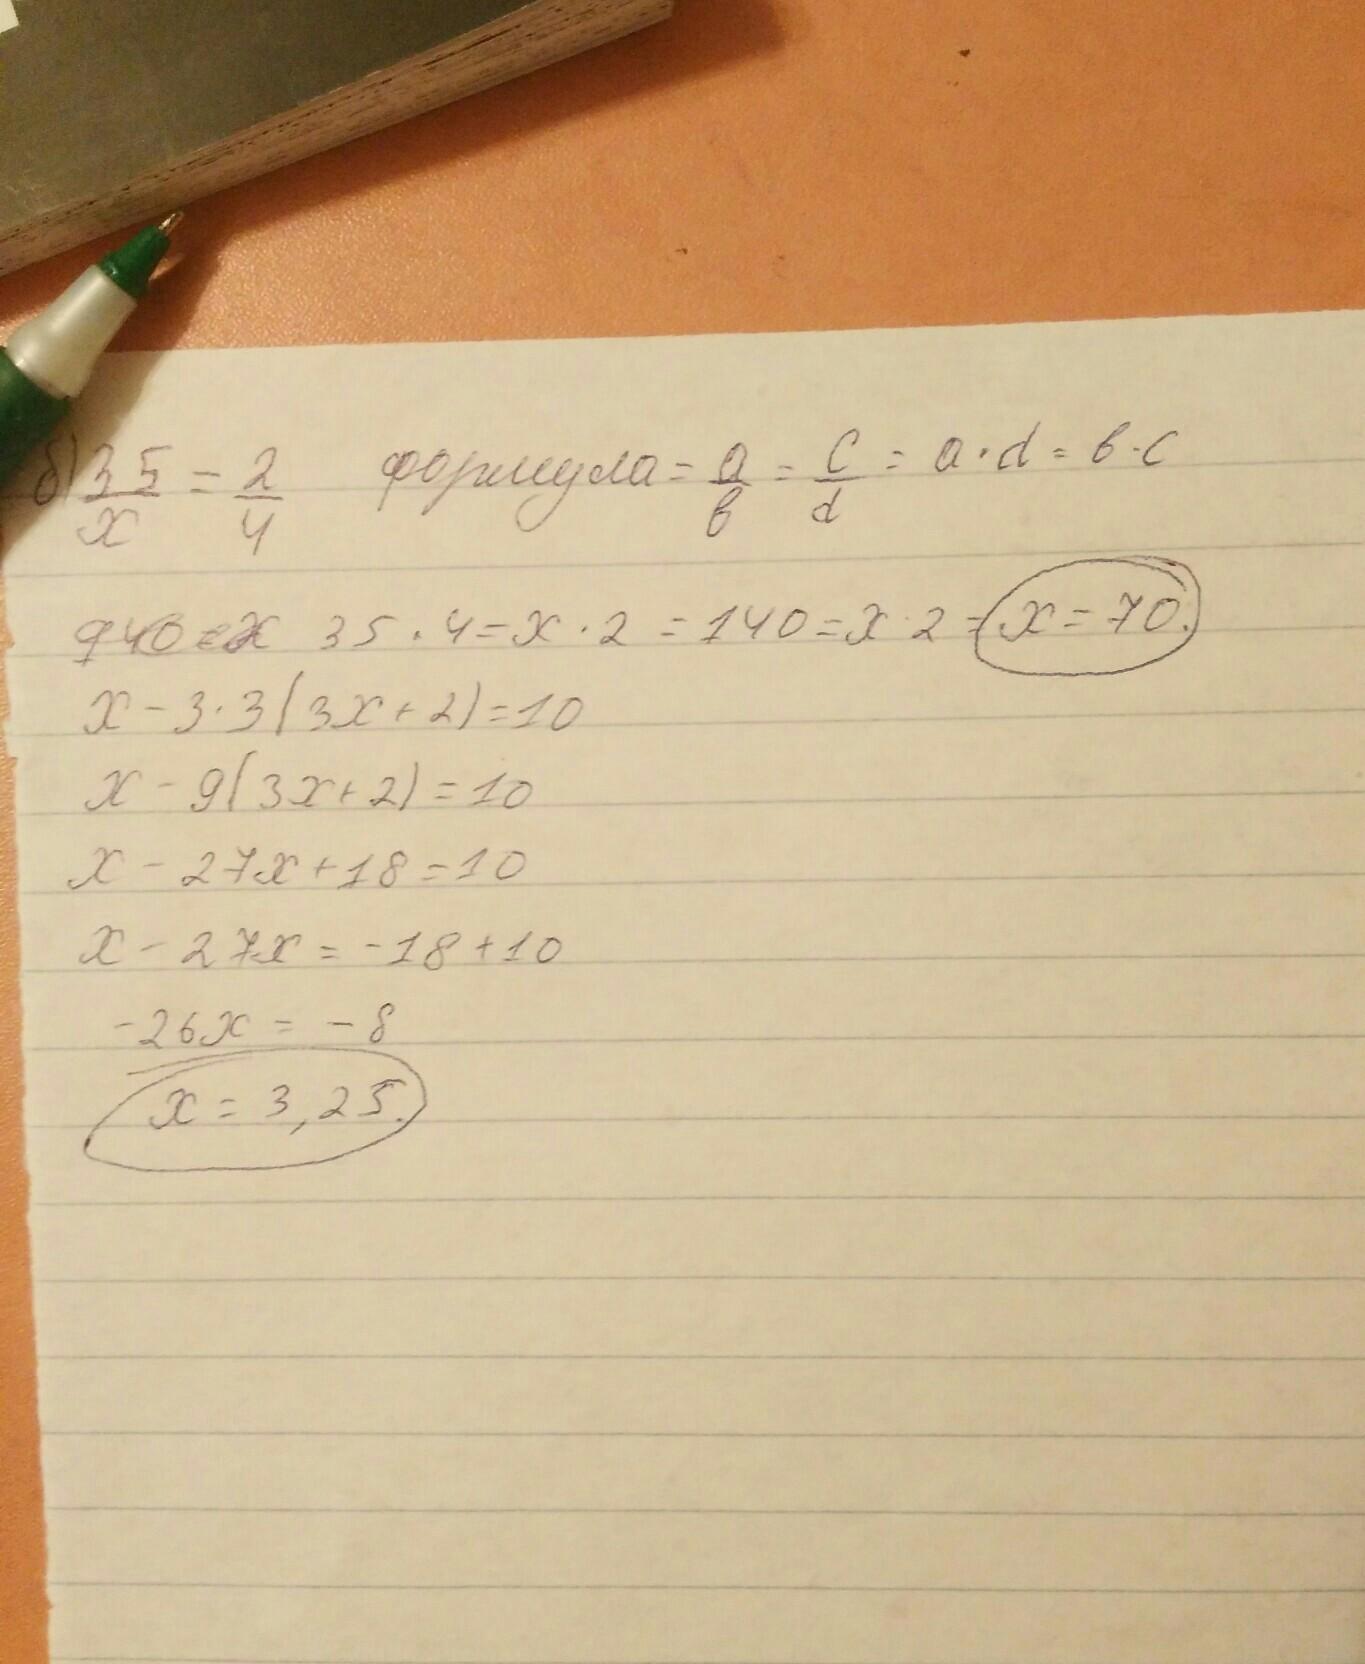 б) 35/x = 2/4 формула = a/b = c/d = a·d = b·c
35·4=x·2 =140=x·2= x=70.
x-3·3(3x+2)=10
x-9(3x+2)=10
x-27x+18=10
x-27x=-18+10
-26x=-8
x=3,25.